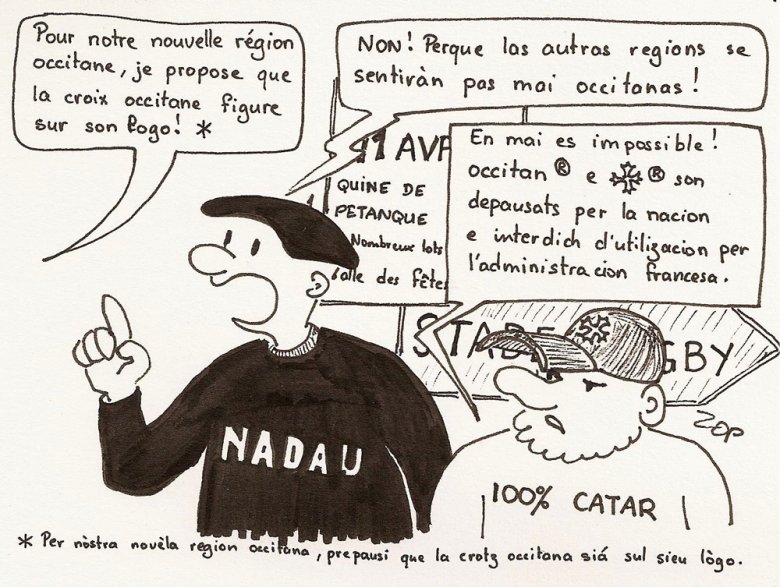 Pour notre nouvelle région
occitane, je propose que
la croix occitane figure
sur son logo! *
NON! Perque las autras regions se
sentiràn pas mai occitanas!
En mai es impossible!
occitan ® e ® son
depausats per la nacion
e interdich d'utilizacion per
l'administracion francesa.
11 AVR
QUINE DE
PETANQUE
Nombreux lots
salle des fêtes
STADE RUGBY
NADAU
100% CATAR
ZOP
* Per nòstra novèla region occitana, prepausi que la crotz occitana siá sul sieu lògo.